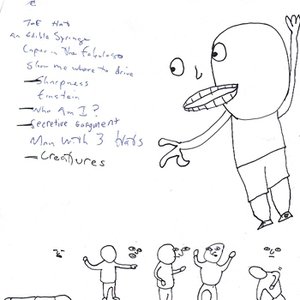 The Hats
an Edible Syringe
Caper in the Fabulous
Show me where to drive
Sharpness
Einstein
Who Am I?
Secretive
Man with 3 Hats
Creatures